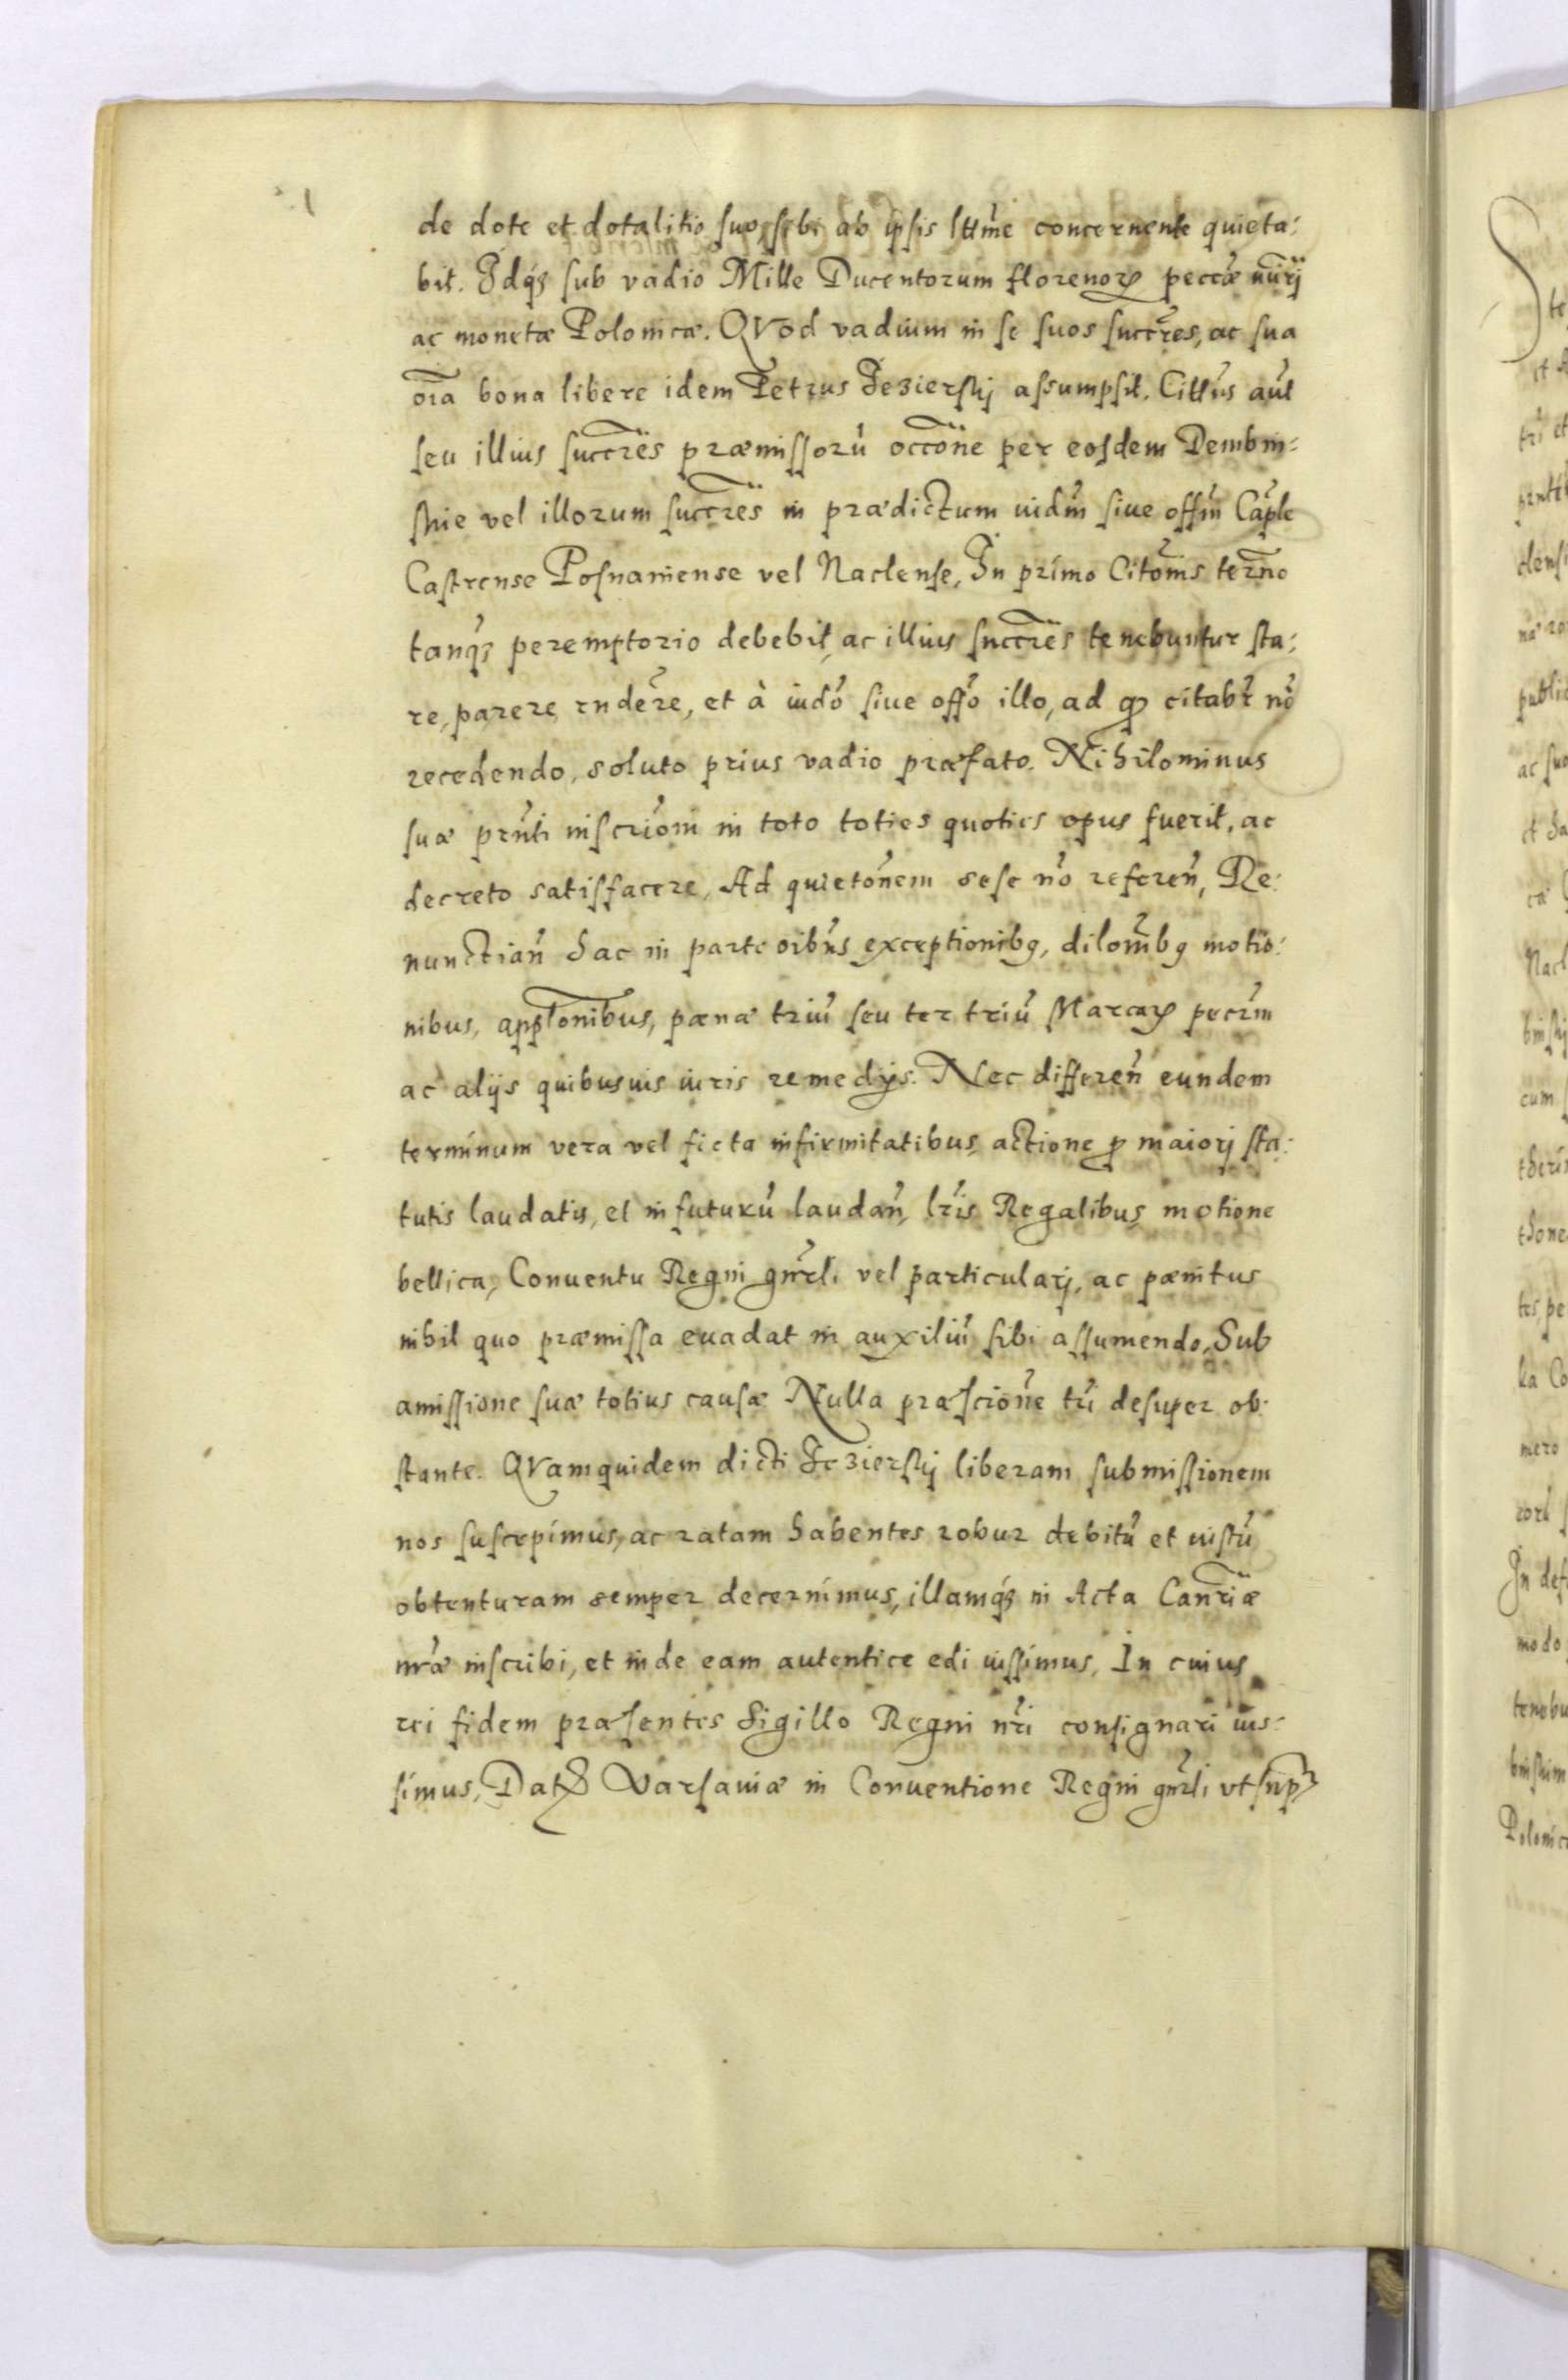 de dote et dotalitio suo, sibi ab ipsis lttme concernente quieta:
bit. Idq3 sub vadio Mille Ducentorum florenorꝝ peccæ nuřj
ac monetæ Polonicæ. QVod vadium in se suos succres, ac sua
oia bona libere idem Petrus Jezierskij assumpsit. Cittus aut
seu illius succres præmissorũ occone per eosdem Dembin:
skie vel illorum succres in prædictum iudm siue offm Caple
Castrense Posnaniense vel Naclense, In primo Citõnis termo
tanq3 peremptorio debebit, ac illius succres tenebuntur sta:
re, parere rndere, et à iudo siue offo illo, ad qꝫ citabr no
recedendo, soluto prius vadio præfato. Nihilominus
suæ prnti inscrioni in toto toties quoties opus fuerit, ac
decreto satisfacere, Ad quietonem sese no referen, Re:
nunctian hac in parte oibus exceptionibꝫ, dilonibꝫ motio:
nibus, applonibus, pœnæ triũ seu ter triũ Marcarꝝ pecrm
ac alijs quibusuis iuris remedijs. Nec differen eundem
terminum vera vel ficta infirmitatibus, actione ꝓ maiorj sta:
tutis laudatis, et in futurũ laudan, lris Regalibus, motione
bellica, Conuentu Regni gnrli vel particularj, ac pœnitus
nihil quo præmissa euadat in auxiliũ sibi assumendo, Sub
amissione suæ totius causæ Nulla præscrione tri desuper ob:
stante. QVamquidem dicti Jezierskij liberam submissionem
nos suscepimus, ac ratam habentes robur debitũ et iustũ
obtenturam semper decernimus, illamq3 in Acta Canriæ
nræ inscribi, et inde eam autentice edi iussimus, In cuius
rei fidem præsentes Sigillo Regni nri consignari ius:
simus, Datꝝ Varsauiæ in Conuentione Regni gnrli vt supr